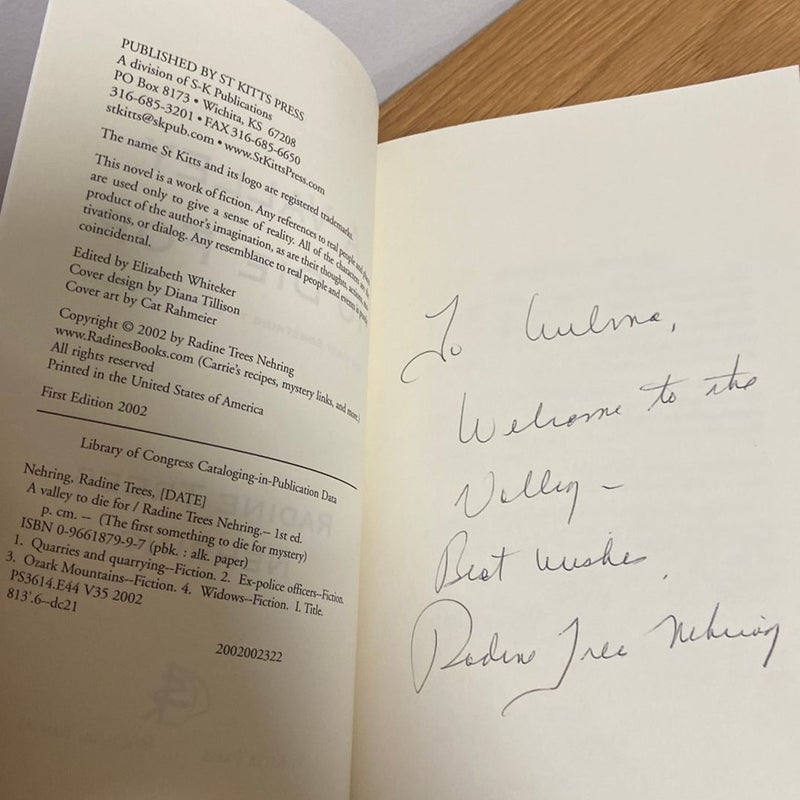 PUBLISHED BY ST KITTS PRESS
A division of S-K Publications
PO Box 8173 • Wichita, KS 67208
316-685-3201 • FAX 316-685-6650
stkitts@skpub.com • www.StKittsPress.com
The name St Kitts and its logo are registered trademarks.
This novel is a work of fiction. Any references to real people and places
are used only to give a sense of reality. All of the characters are the
product of the author's imagination, as are their thoughts, actions, mo-
tivations, or dialog. Any resemblance to real people and events is purely
coincidental.
Edited by Elizabeth Whiteker
Cover design by Diana Tillison
Cover art by Cat Rahmeier
Copyright © 2002 by Radine Trees Nehring
www.RadinesBooks.com (Carrie's recipes, mystery links, and more.)
All rights reserved
Printed in the United States of America
First Edition 2002
Library of Congress Cataloging-in-Publication Data
Nehring, Radine Trees, [DATE]
A valley to die for / Radine Trees Nehring.-- 1st ed.
p. cm. -- (The first something to die for mystery)
ISBN 0-9661879-9-7 (pbk. : alk. paper)
1. Quarries and quarrying--Fiction. 2. Ex-police officers--Fiction.
3. Ozark Mountains--Fiction. 4. Widows--Fiction. I. Title.
PS3614.E44 V35 2002
813'.6--dc21
2002002322
To
Welcome to the
Valley –
Best wishes,
Radine Trees Nehring